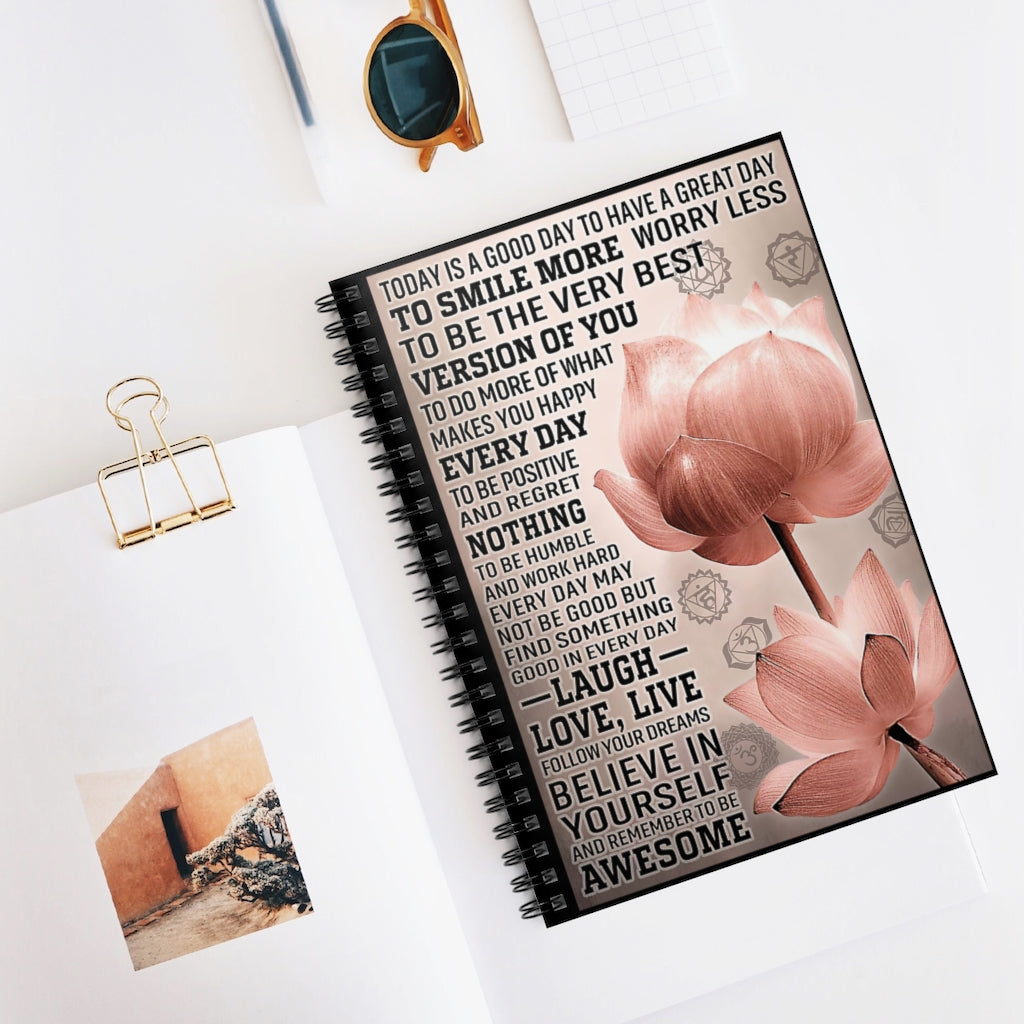 TODAY IS A GOOD DAY TO HAVE A GREAT DAY
TO SMILE MORE WORRY LESS
TO BE THE VERY BEST
VERSION OF YOU
TO DO MORE OF WHAT
MAKES YOU HAPPY
EVERY DAY
TO BE POSITIVE
AND REGRET
NOTHING
TO BE HUMBLE
AND WORK HARD
EVERY DAY MAY
NOT BE GOOD BUT
FIND SOMETHING
GOOD IN EVERY DAY
—LAUGH—
LOVE, LIVE
FOLLOW YOUR DREAMS
BELIEVE IN
YOURSELF
AND REMEMBER TO BE
AWESOME